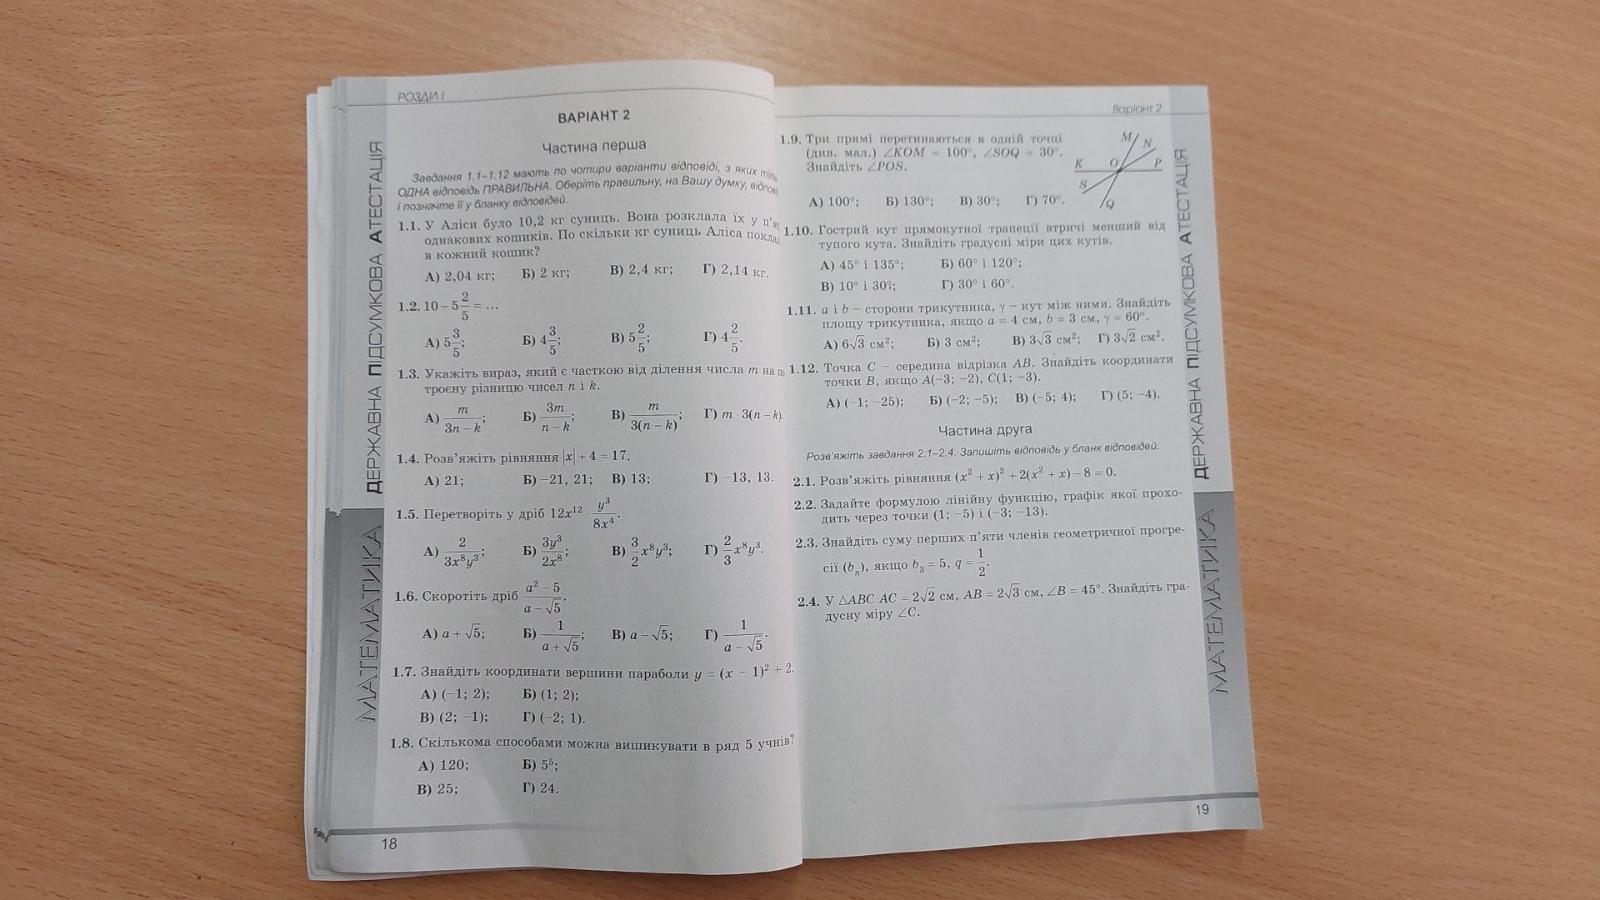 РОЗДІЛ I
ВАРІАНТ 2
Частина перша
Завдання 1.1–1.12 мають по чотири варіанти відповіді, з яких
ОДНА відповідь ПРАВИЛЬНА. Оберіть правильну, на Вашу думку,
і позначте її у бланку відповідей.
1.1. У Аліси було 10,2 кг суниць. Вона розклала їх у
однакових кошиків. По скільки кг суниць Аліса
в кожний кошик?
А) 2,04 кг; Б) 2 кг; В) 2,4 кг; Г) 2,14 кг.
1.2. 10 – 5 2/5 = ...
А) 5 3/5; Б) 4 3/5; В) 5 2/5; Г) 4 2/5.
1.3. Укажіть вираз, який є часткою від ділення числа m на
троєну різницю чисел n і k.
А) m/(3n – k); Б) 3m/(n – k); В) m/(3(n – k)); Г) m · 3(n – k).
1.4. Розв'яжіть рівняння |x| + 4 = 17.
А) 21; Б) –21, 21; В) 13; Г) –13, 13.
1.5. Перетворіть у дріб 12x¹² · y³/(8x⁴).
А) 2/(3x⁸y³); Б) 3y³/(2x⁸); В) 3/2 x⁸y³; Г) 2/3 x⁸y³.
1.6. Скоротіть дріб (a² – 5)/(a – √5).
А) a + √5; Б) 1/(a + √5); В) a – √5; Г) 1/(a – √5).
1.7. Знайдіть координати вершини параболи y = (x – 1)² + 2.
А) (–1; 2); Б) (1; 2);
В) (2; –1); Г) (–2; 1).
1.8. Скількома способами можна вишикувати в ряд 5 учнів?
А) 120; Б) 5⁵;
В) 25; Г) 24.
18
ДЕРЖАВНА ПІДСУМКОВА АТЕСТАЦІЯ
МАТЕМАТИКА
Варіант 2
1.9. Три прямі перетинаються в одній точці
(див. мал.) ∠KOM = 100°, ∠SOQ = 30°.
Знайдіть ∠POS.
M N K O P S Q
А) 100°; Б) 130°; В) 30°; Г) 70°.
1.10. Гострий кут прямокутної трапеції втричі менший від
тупого кута. Знайдіть градусні міри цих кутів.
А) 45° і 135°; Б) 60° і 120°;
В) 10° і 30°; Г) 30° і 60°.
1.11. a і b – сторони трикутника, γ – кут між ними. Знайдіть
площу трикутника, якщо a = 4 см, b = 3 см, γ = 60°.
А) 6√3 см²; Б) 3 см²; В) 3√3 см²; Г) 3√2 см².
1.12. Точка C – середина відрізка AB. Знайдіть координати
точки B, якщо A(–3; –2), C(1; –3).
А) (–1; –25); Б) (–2; –5); В) (–5; 4); Г) (5; –4).
Частина друга
Розв'яжіть завдання 2.1–2.4. Запишіть відповідь у бланк відповідей.
2.1. Розв'яжіть рівняння (x² + x)² + 2(x² + x) – 8 = 0.
2.2. Задайте формулою лінійну функцію, графік якої прохо-
дить через точки (1; –5) і (–3; –13).
2.3. Знайдіть суму перших п'яти членів геометричної прогре-
сії (bₙ), якщо b₃ = 5, q = 1/2.
2.4. У △ABC AC = 2√2 см, AB = 2√3 см, ∠B = 45°. Знайдіть гра-
дусну міру ∠C.
19
ДЕРЖАВНА ПІДСУМКОВА АТЕСТАЦІЯ
МАТЕМАТИКА